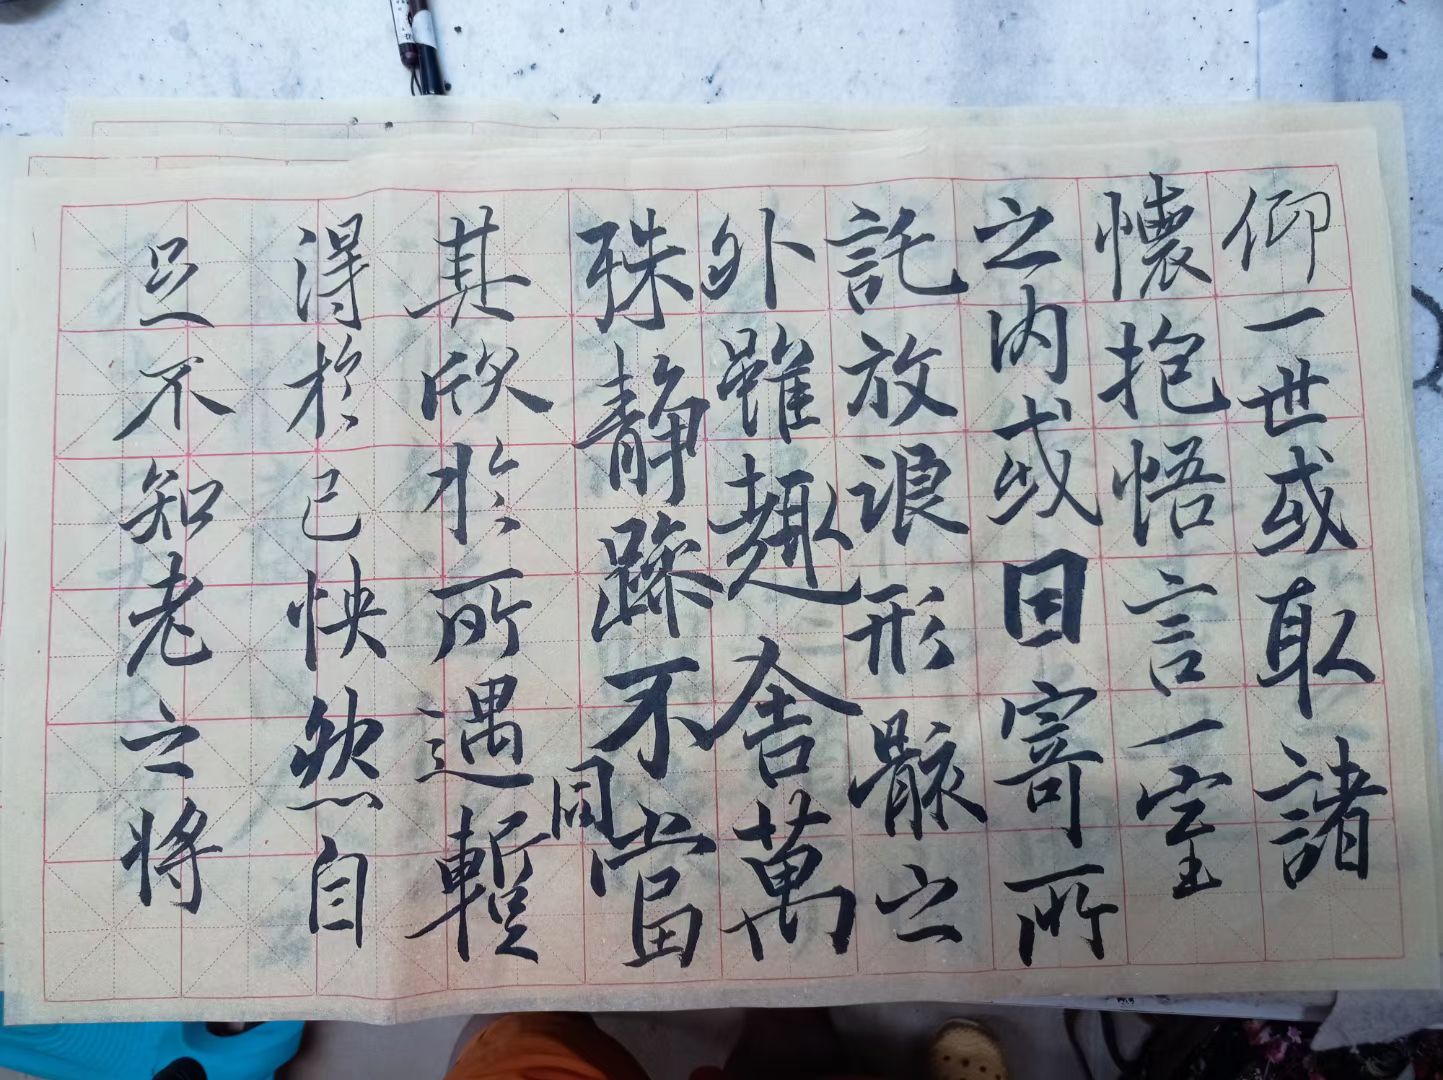 仰一世或取諸
懷抱悟言一室
之内或因寄所
託放浪形骸之
外雖趣舍萬
殊静躁不同當
其欣於所遇暫
得於己怏然自
足不知老之将